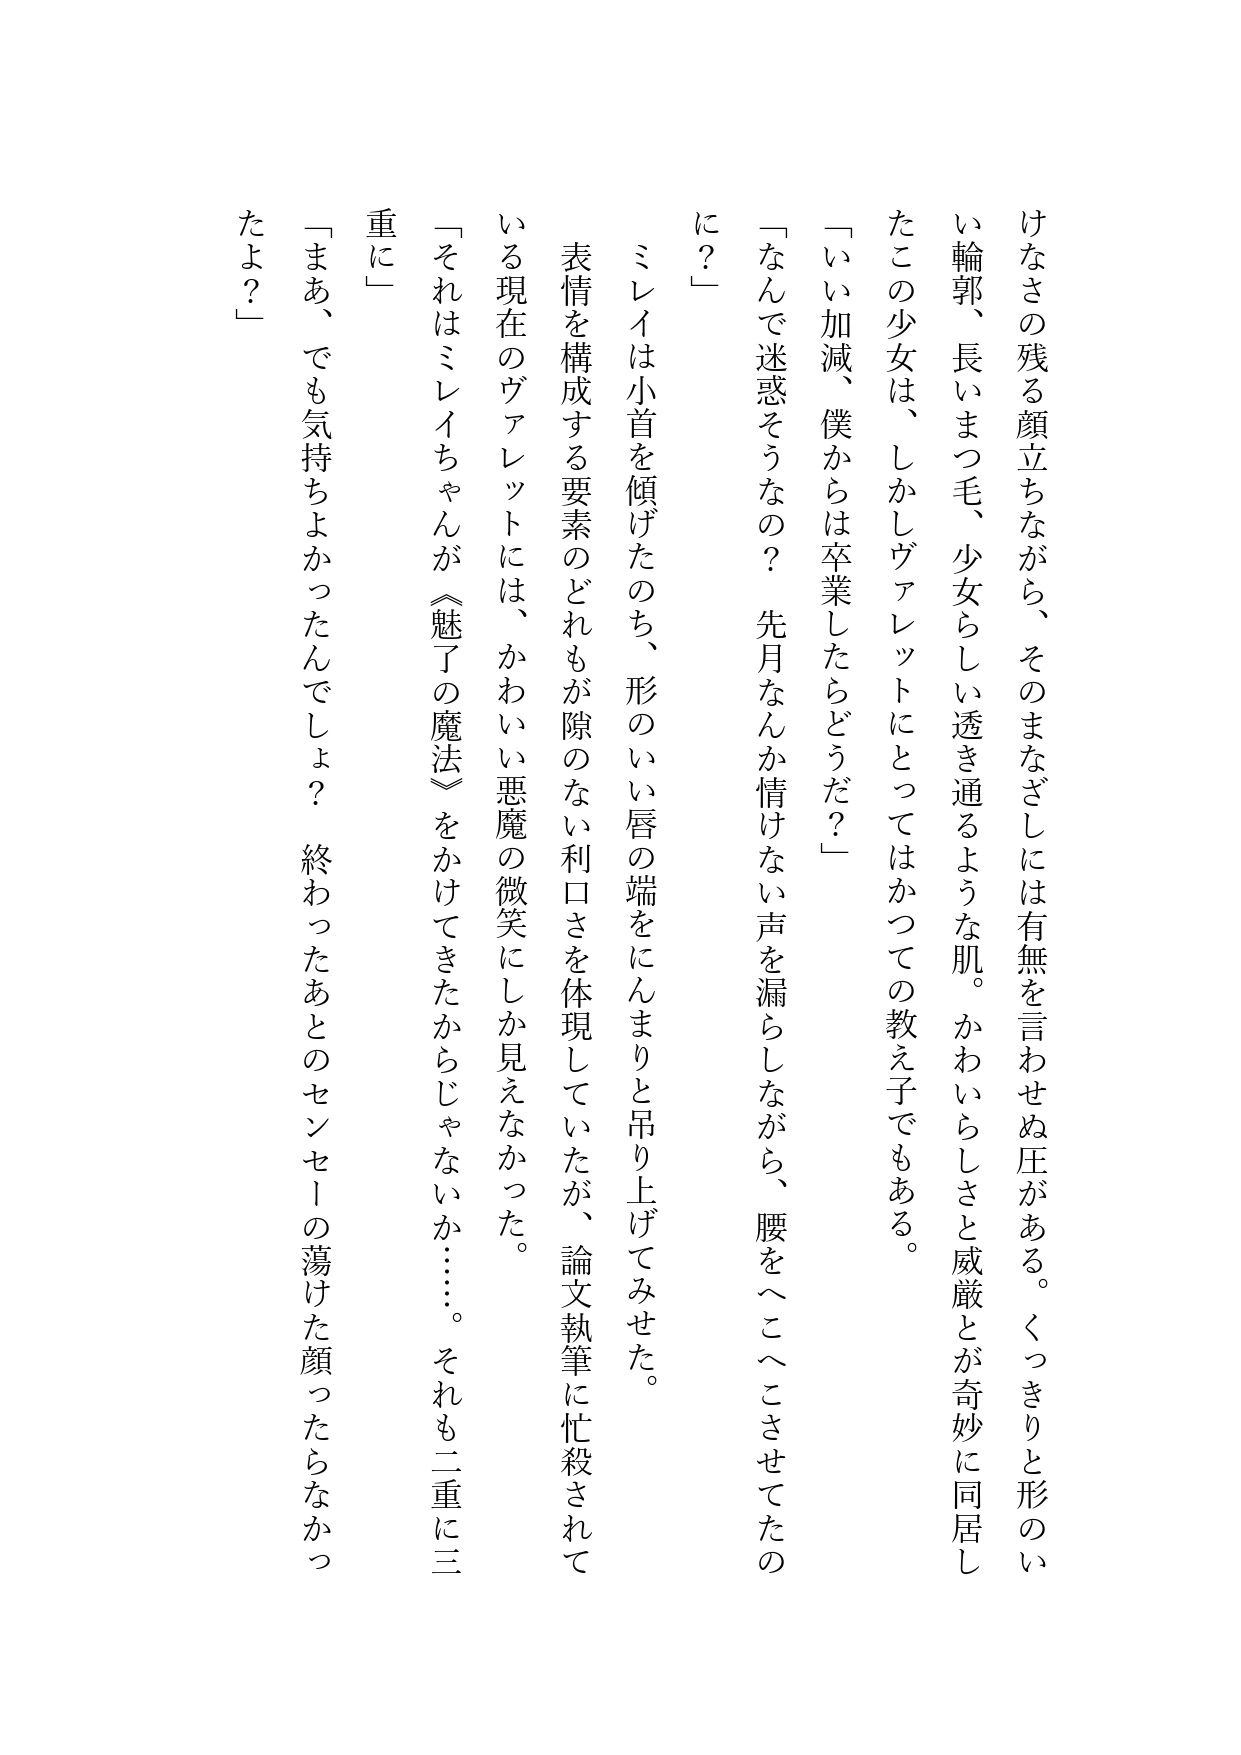 けなさの残る顔立ちながら、そのまなざしには有無を言わせぬ圧がある。くっきりと形のい
い輪郭、長いまつ毛、少女らしい透き通るような肌。かわいらしさと威厳とが奇妙に同居し
たこの少女は、しかしヴァレットにとってはかつての教え子でもある。
「いい加減、僕からは卒業したらどうだ？」
「なんで迷惑そうなの？　先月なんか情けない声を漏らしながら、腰をへこへこさせてたの
に？」
　ミレイは小首を傾げたのち、形のいい唇の端をにんまりと吊り上げてみせた。
　表情を構成する要素のどれもが隙のない利口さを体現していたが、論文執筆に忙殺されて
いる現在のヴァレットには、かわいい悪魔の微笑にしか見えなかった。
「それはミレイちゃんが《魅了の魔法》をかけてきたからじゃないか……。それも二重に三
重に」
「まあ、でも気持ちよかったんでしょ？　終わったあとのセンセーの蕩けた顔ったらなかっ
たよ？」